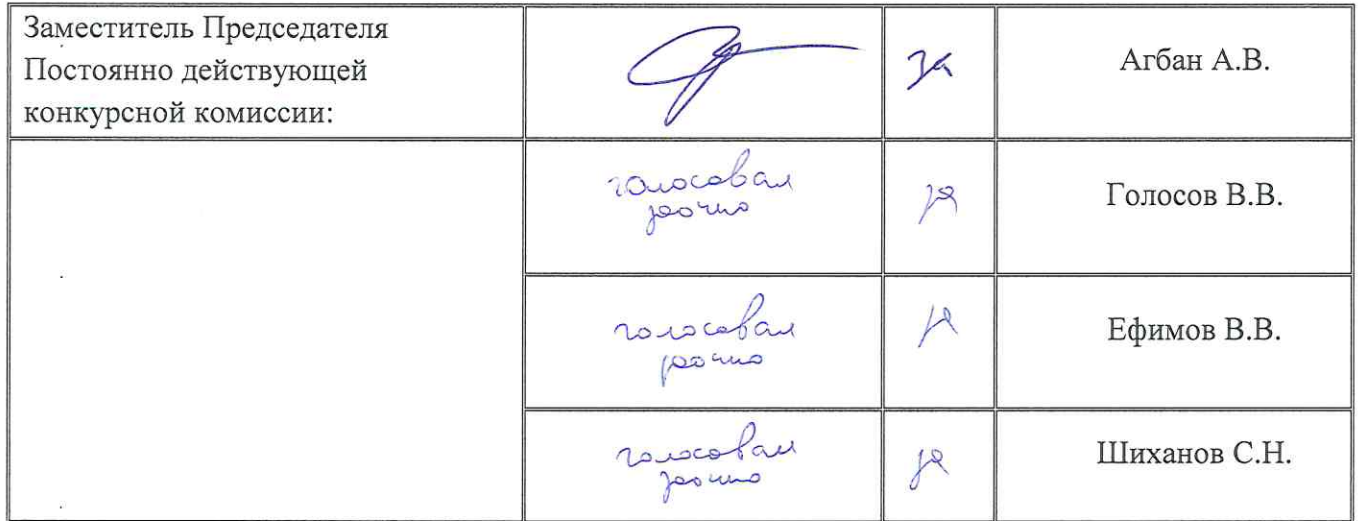 Заместитель Председателя
Постоянно действующей
конкурсной комиссии:
за
Агбан А.В.
голосовал
заочно
за
Голосов В.В.
голосовал
заочно
за
Ефимов В.В.
голосовал
заочно
за
Шиханов С.Н.